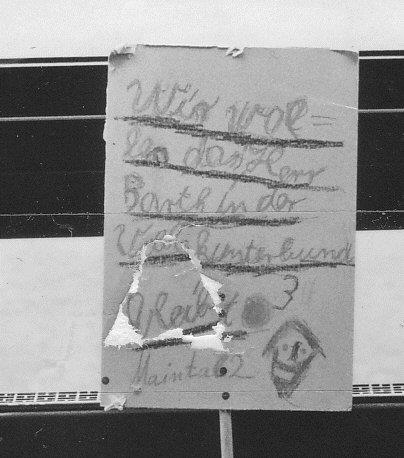 Wir wol=
len das Herr
Barth in der
Wachenbunterbund
bleibt 3
Maintal 2